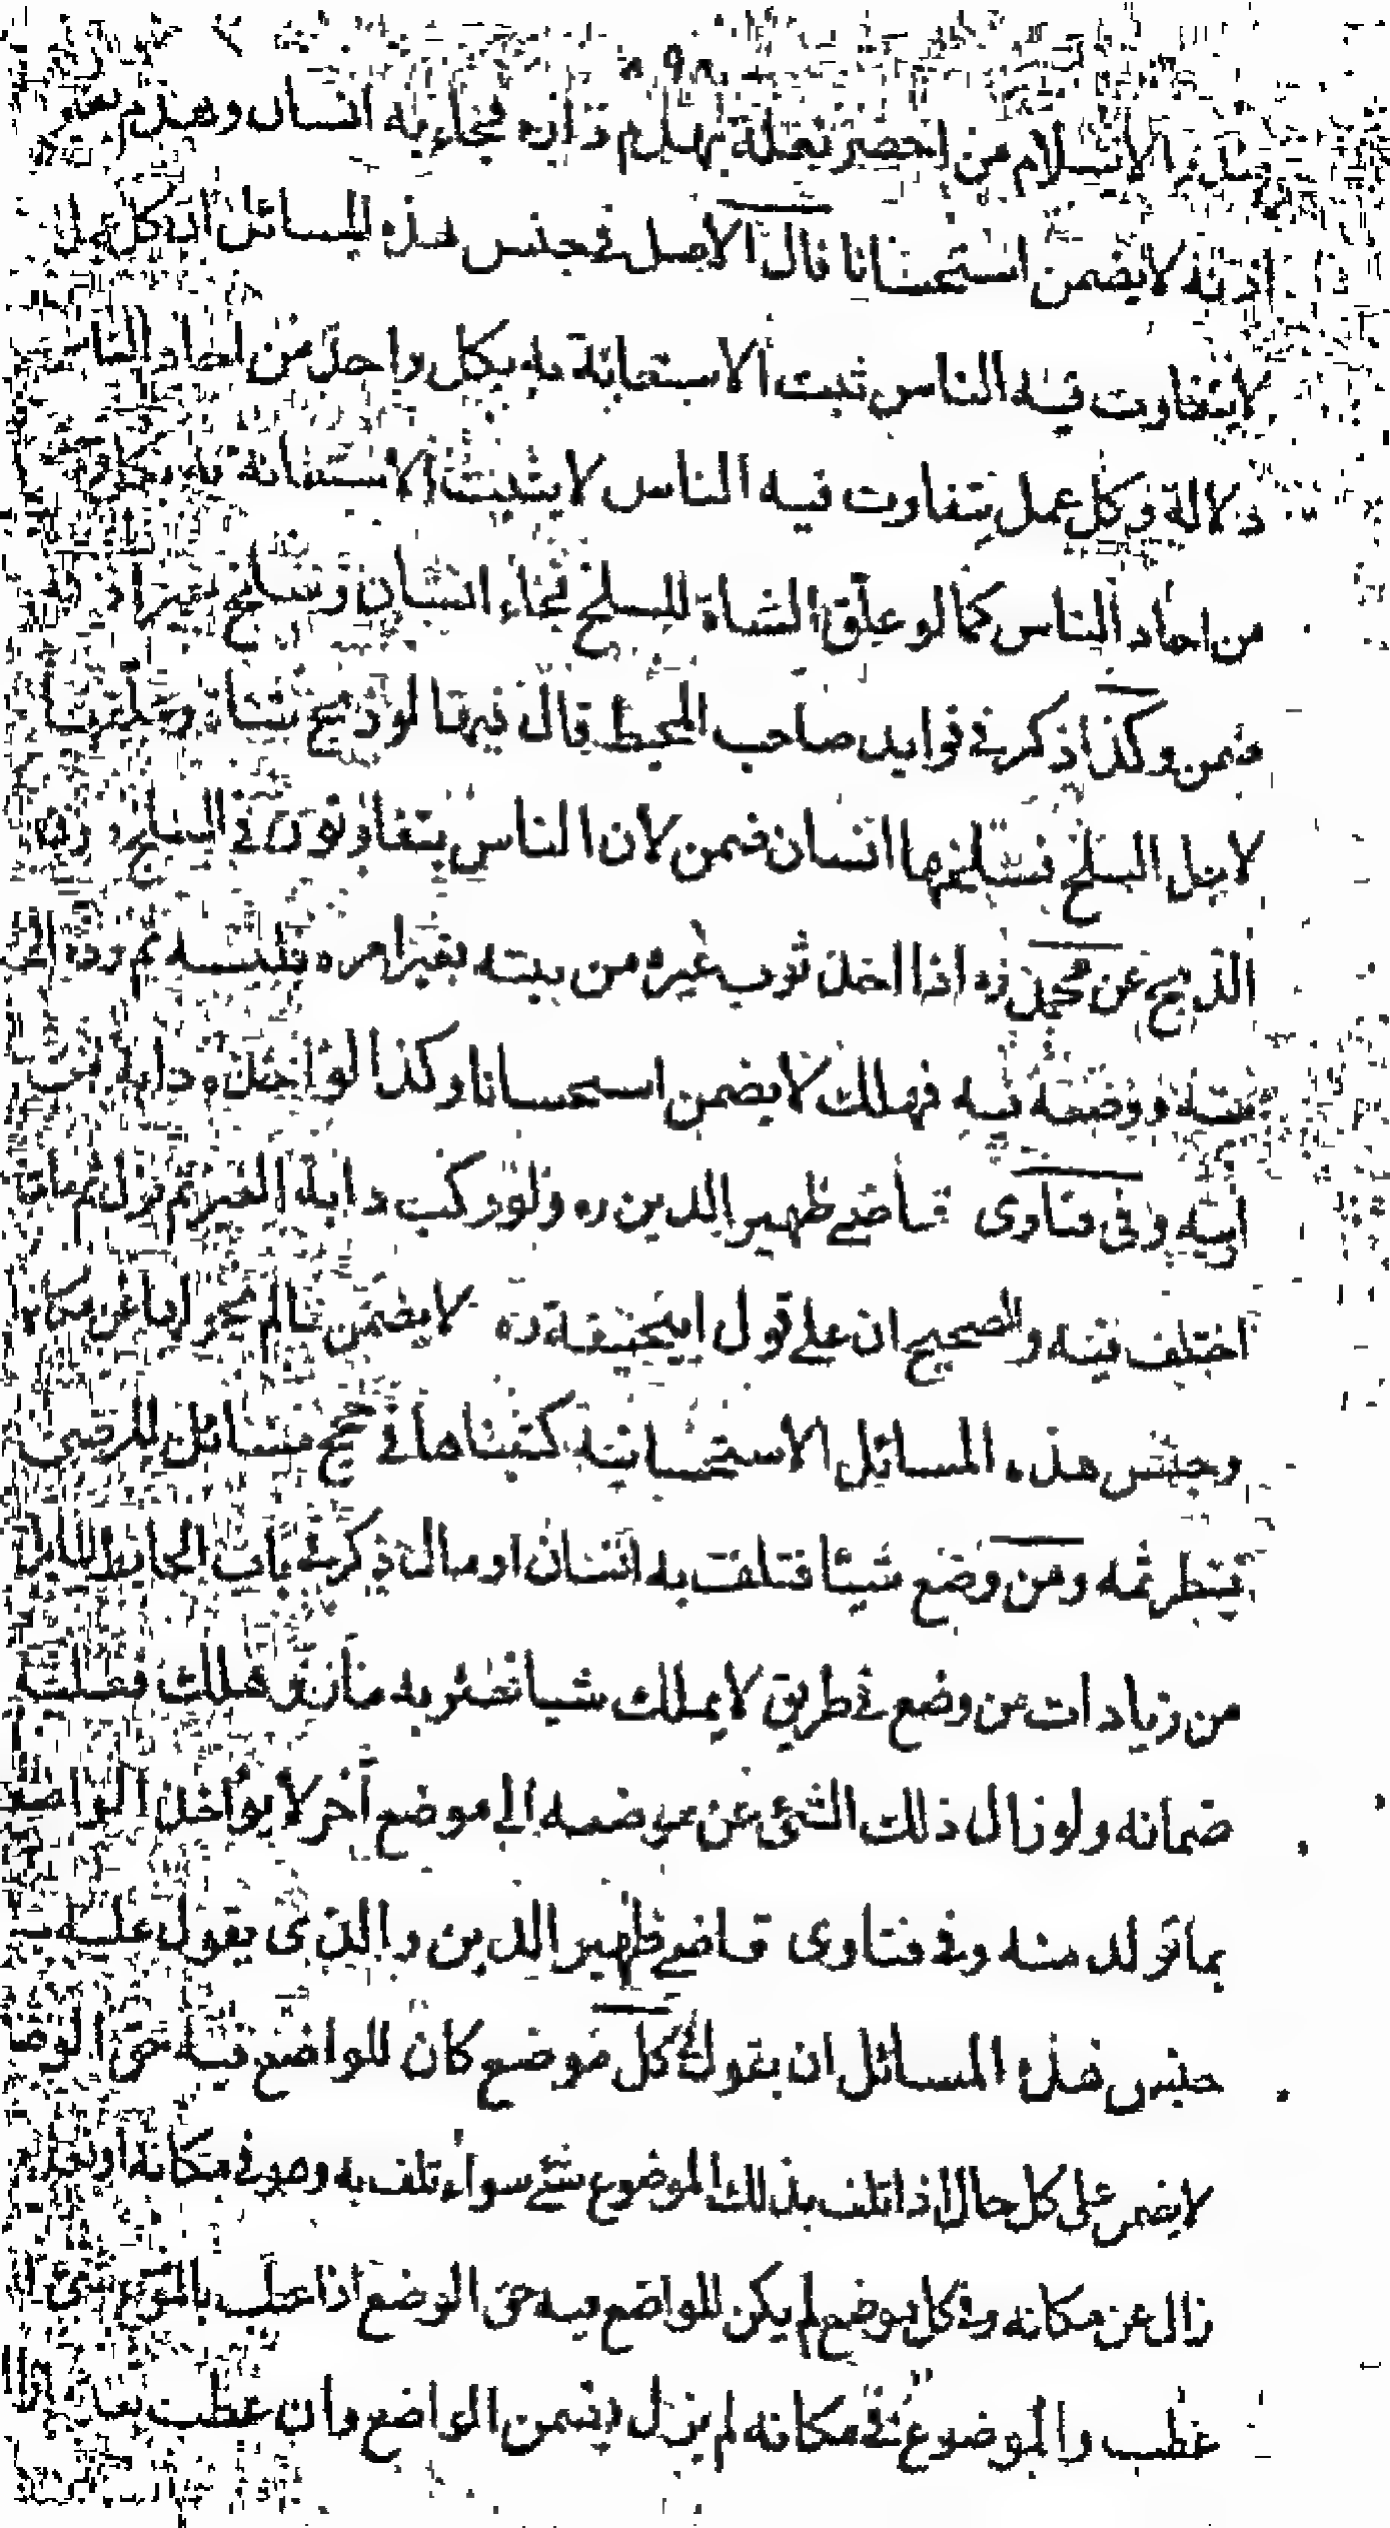 الاسلام من احضر فعلة لهدم داره فجاء به انسان وهدم بغير
اذنه لا يضمن استحسانا قال الاصل في جنس هذه المسائل ان كل عمل
لا يتفاوت فيه الناس ثبت الاستعانة به بكل واحد من احاد الناس
دلالة وكل عمل يتفاوت فيه الناس لا يثبت الاستعانة به بكل
من احاد الناس كما لو علق الشاة للسلخ فجاء انسان وسلخ بغير اذنه
ضمن وكذا ذكر في فوايد صاحب المحيط قال فيها لو ذبح شاة وعلقها
لاجل السلخ فسلخها انسان ضمن لان الناس يتفاوتون في السلخ دون
الذبح عن محمد ره اذا اخذ ثوب غيره من بيته بغير امره فلبسه ثم رده الى
بيته ووضعه فيه فهلك لا يضمن استحسانا وكذا لو اخذ دابة من
اريه وفي فتاوى قاضي ظهير الدين ره ولو ركب دابة الغير ثم نزل ثم مات
اختلف فيه والصحيح ان على قول ابيحنيفة ره لا يضمن مالم يحولها عن مكانه
وجنس هذه المسائل الاستحسانية كتبناها في حجج مسائل المرضى
ينظر ثمه ومن وضع شيئا فتلف به انسان او مال ذكر في باب الحائط المائل
من زيادات من وضع في طريق لا يملك شيا فعثر به مار فهلك فعليه
ضمانه ولو زال ذلك الشئ عن موضعه الى موضع آخر لا يؤاخذ الواضع
بما تولد منه وفي فتاوى قاضي ظهير الدين والذي يعول عليه في
جنس هذه المسائل ان يقول كل موضع كان للواضع فيه حق الوضع
لا يضمن على كل حال اذا تلف بذلك الموضوع شئ سواء تلف به وهو في مكانه او بعد
زال عن مكانه وفي كل موضع لم يكن للواضع فيه حق الوضع اذا عطب بالموضوع شئ
عطب والموضوع في مكانه لم يزل يضمن الواضع وان عطب بعد ما زال